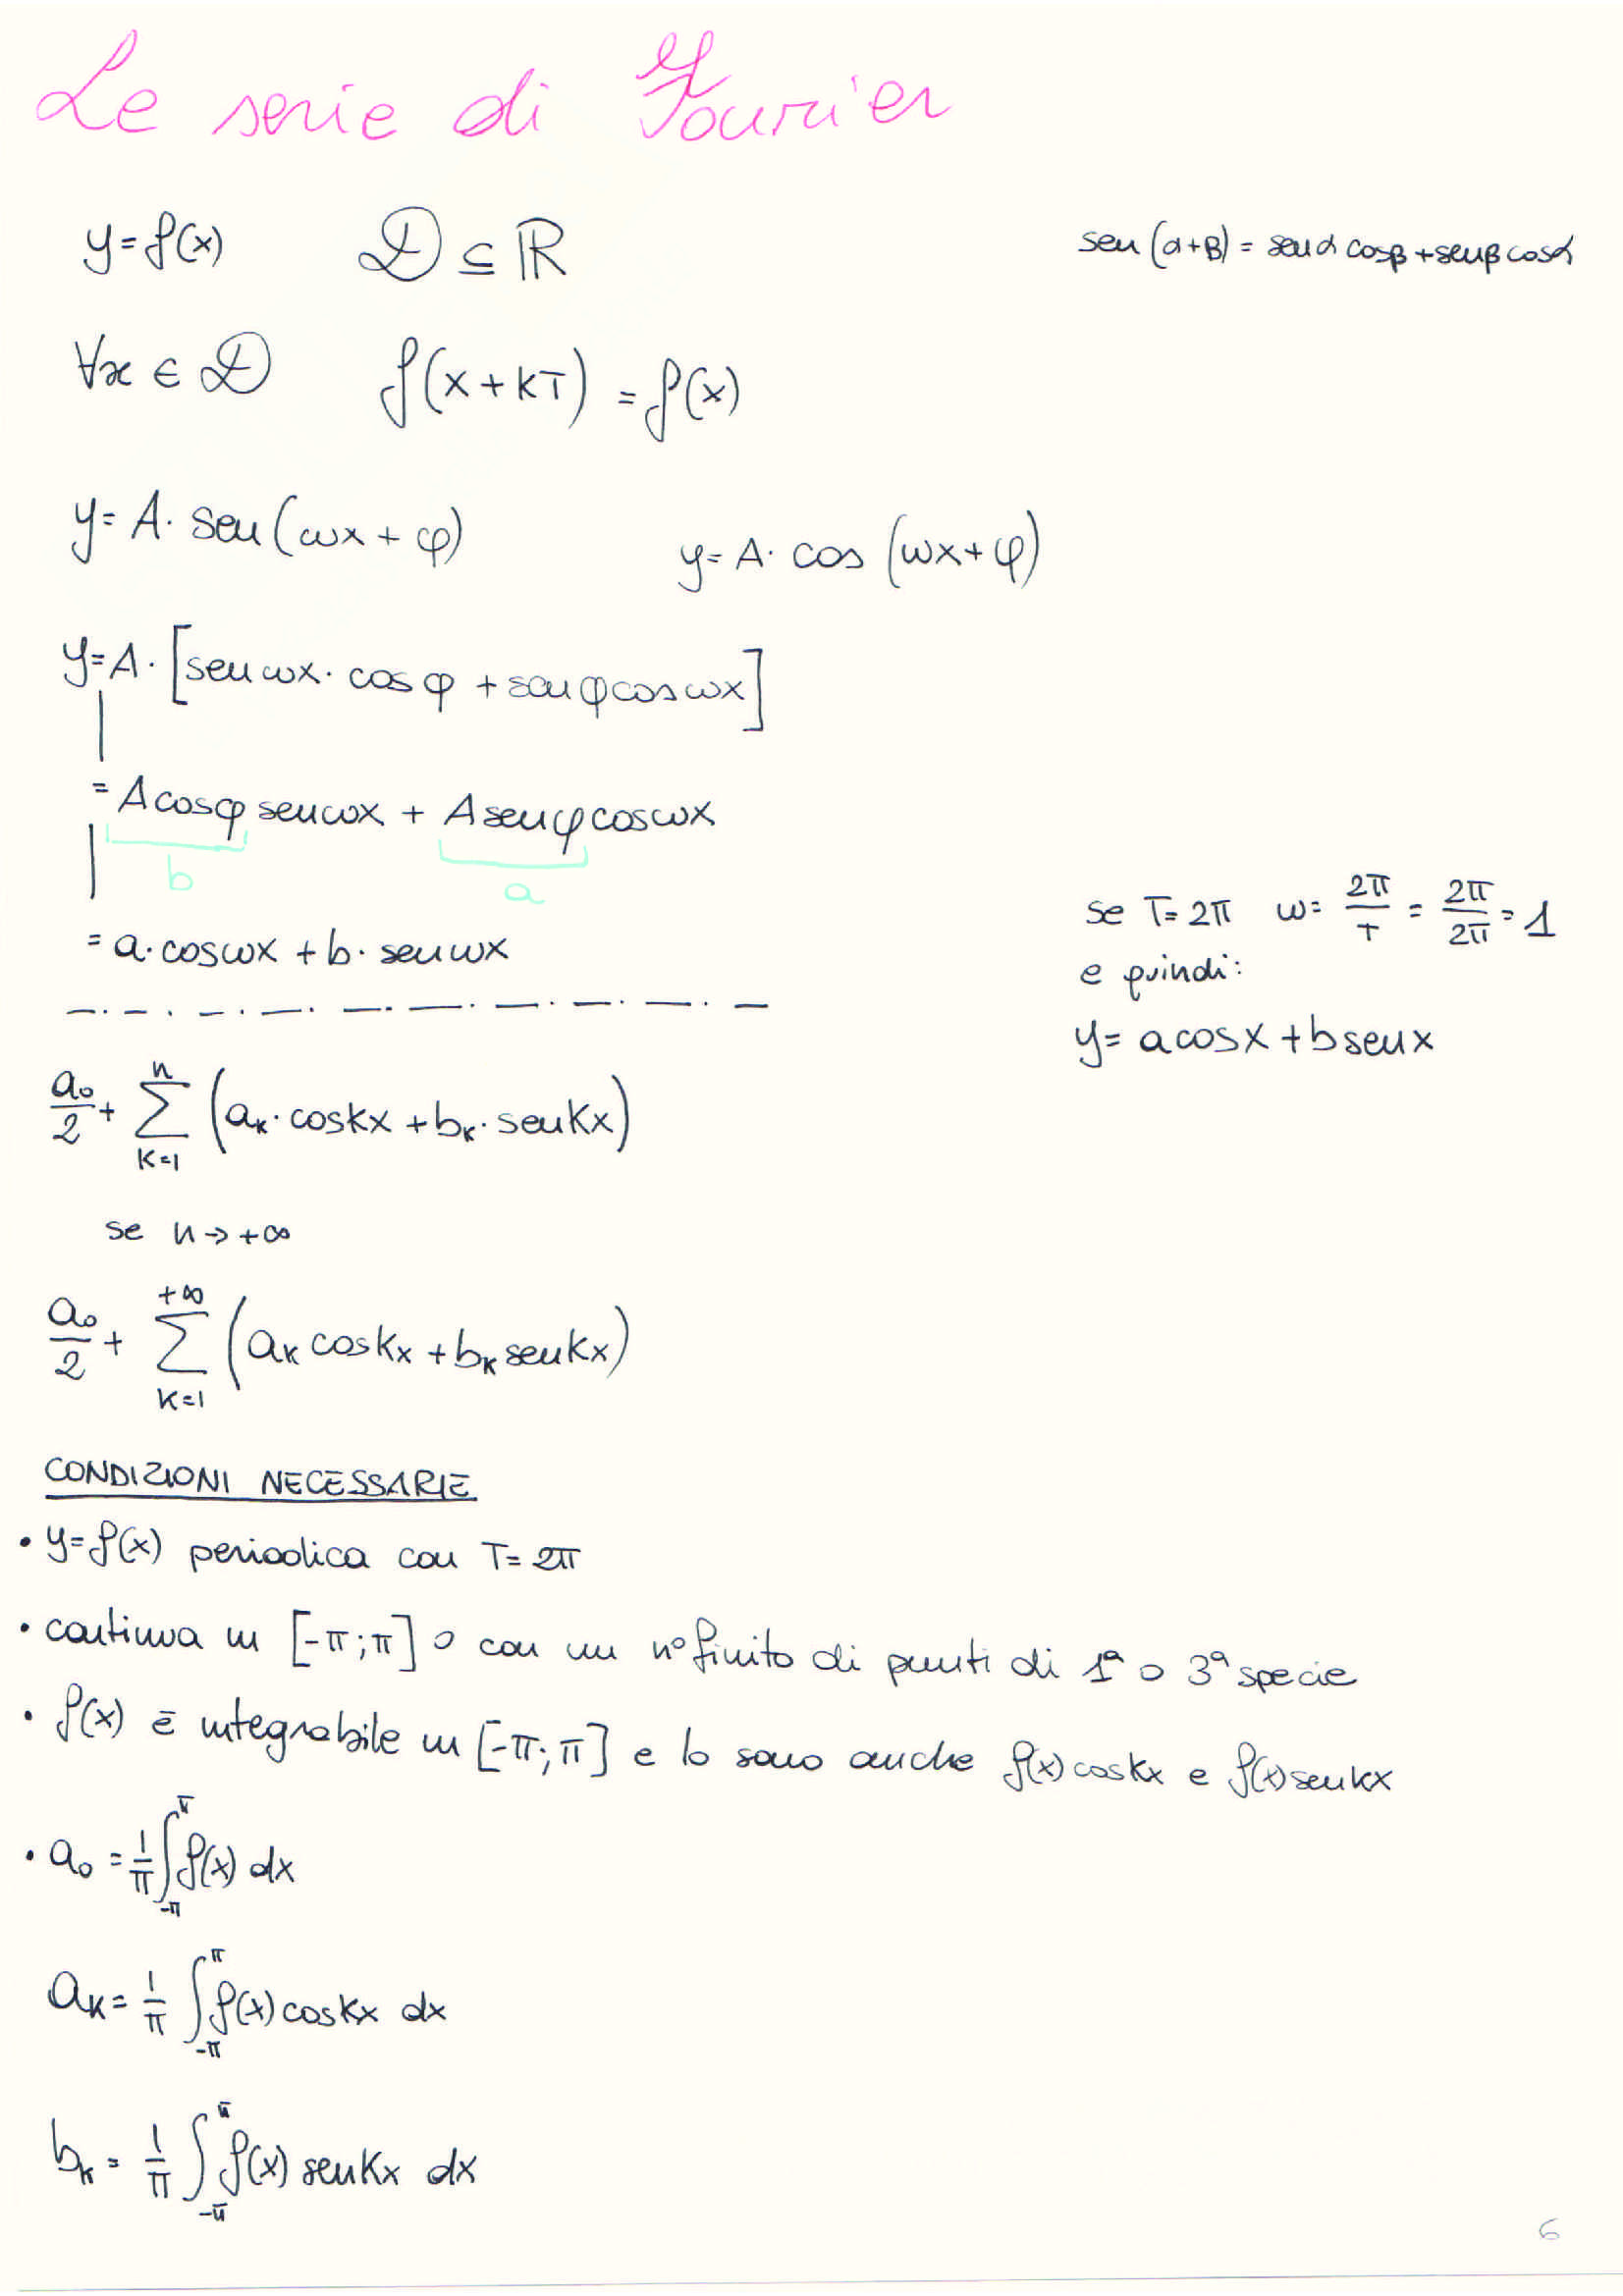 Le serie di Fourier
y=f(x) D ⊆ ℝ sen(α+β) = senα cosβ + senβ cosα
∀x ∈ D f(x+kT) = f(x)
y= A· sen(ωx + φ) y= A· cos (ωx+φ)
y=A·[sen ωx· cos φ + sen φ cos ωx]
= A cosφ sen ωx + A sen φ cos ωx
b a
= a· cos ωx + b· sen ωx
se T= 2π ω= 2π/T = 2π/2π = 1
e quindi:
y= a cosx + b senx
a₀/2 + ∑ₖ₌₁ⁿ (aₖ· coskx + bₖ· senkx)
se n → +∞
a₀/2 + ∑ₖ₌₁⁺∞ (aₖ coskx + bₖ senkx)
CONDIZIONI NECESSARIE
• y=f(x) periodica con T= 2π
• continua in [-π;π] o con un n° finito di punti di 1ª o 3ª specie
• f(x) è integrabile in [-π;π] e lo sono anche f(x)coskx e f(x)senkx
• a₀ = 1/π ∫_{-π}^{π} f(x) dx
aₖ = 1/π ∫_{-π}^{π} f(x) coskx dx
bₖ = 1/π ∫_{-π}^{π} f(x) senkx dx
6